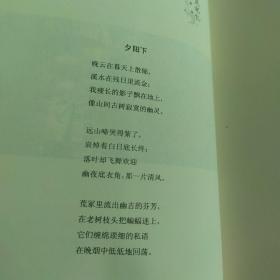 夕阳下
晚云在暮天上散锦，
溪水在残日里流金；
我瘦长的影子飘在地上，
像山间古树底寂寞的幽灵。
远山啼哭得紫了，
哀悼着白日底长终；
落叶却飞舞欢迎
幽夜底衣角，那一片清风。
荒冢里流出幽古的芬芳，
在老树枝头把蝙蝠迷上，
它们缠绵琐细的私语
在晚烟中低低地回荡。